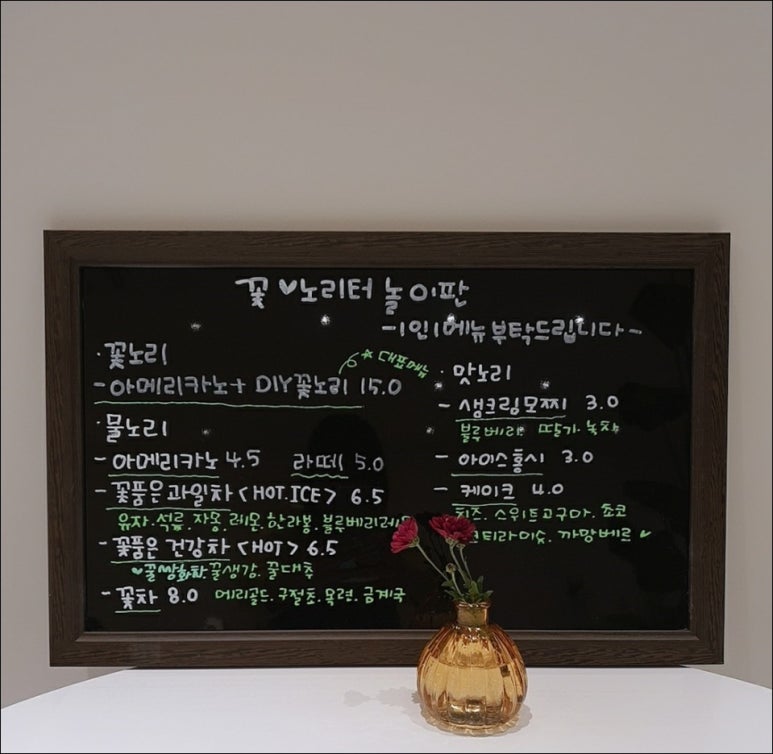 꽃♥노리터 놀이판
-1인1메뉴부탁드립니다-
·꽃노리
☆대표메뉴
-아메리카노+ DIY꽃노리 15.0
·물노리
-아메리카노 4.5 라떼 5.0
-꽃품은과일차<HOT.ICE> 6.5
유자.석류.자몽.레몬.한라봉.블루베리레몬
-꽃품은 건강차<HOT> 6.5
♥꿀쌍화차.꿀생강.꿀대추
-꽃차 8.0 메리골드.구절초.목련.금계국
·맛노리
-생크림모찌 3.0
블루베리. 딸기.녹차
-아이스홍시 3.0
-케이크 4.0
치즈.스위트고구마.쵸코
티라미슈.까망베르♥